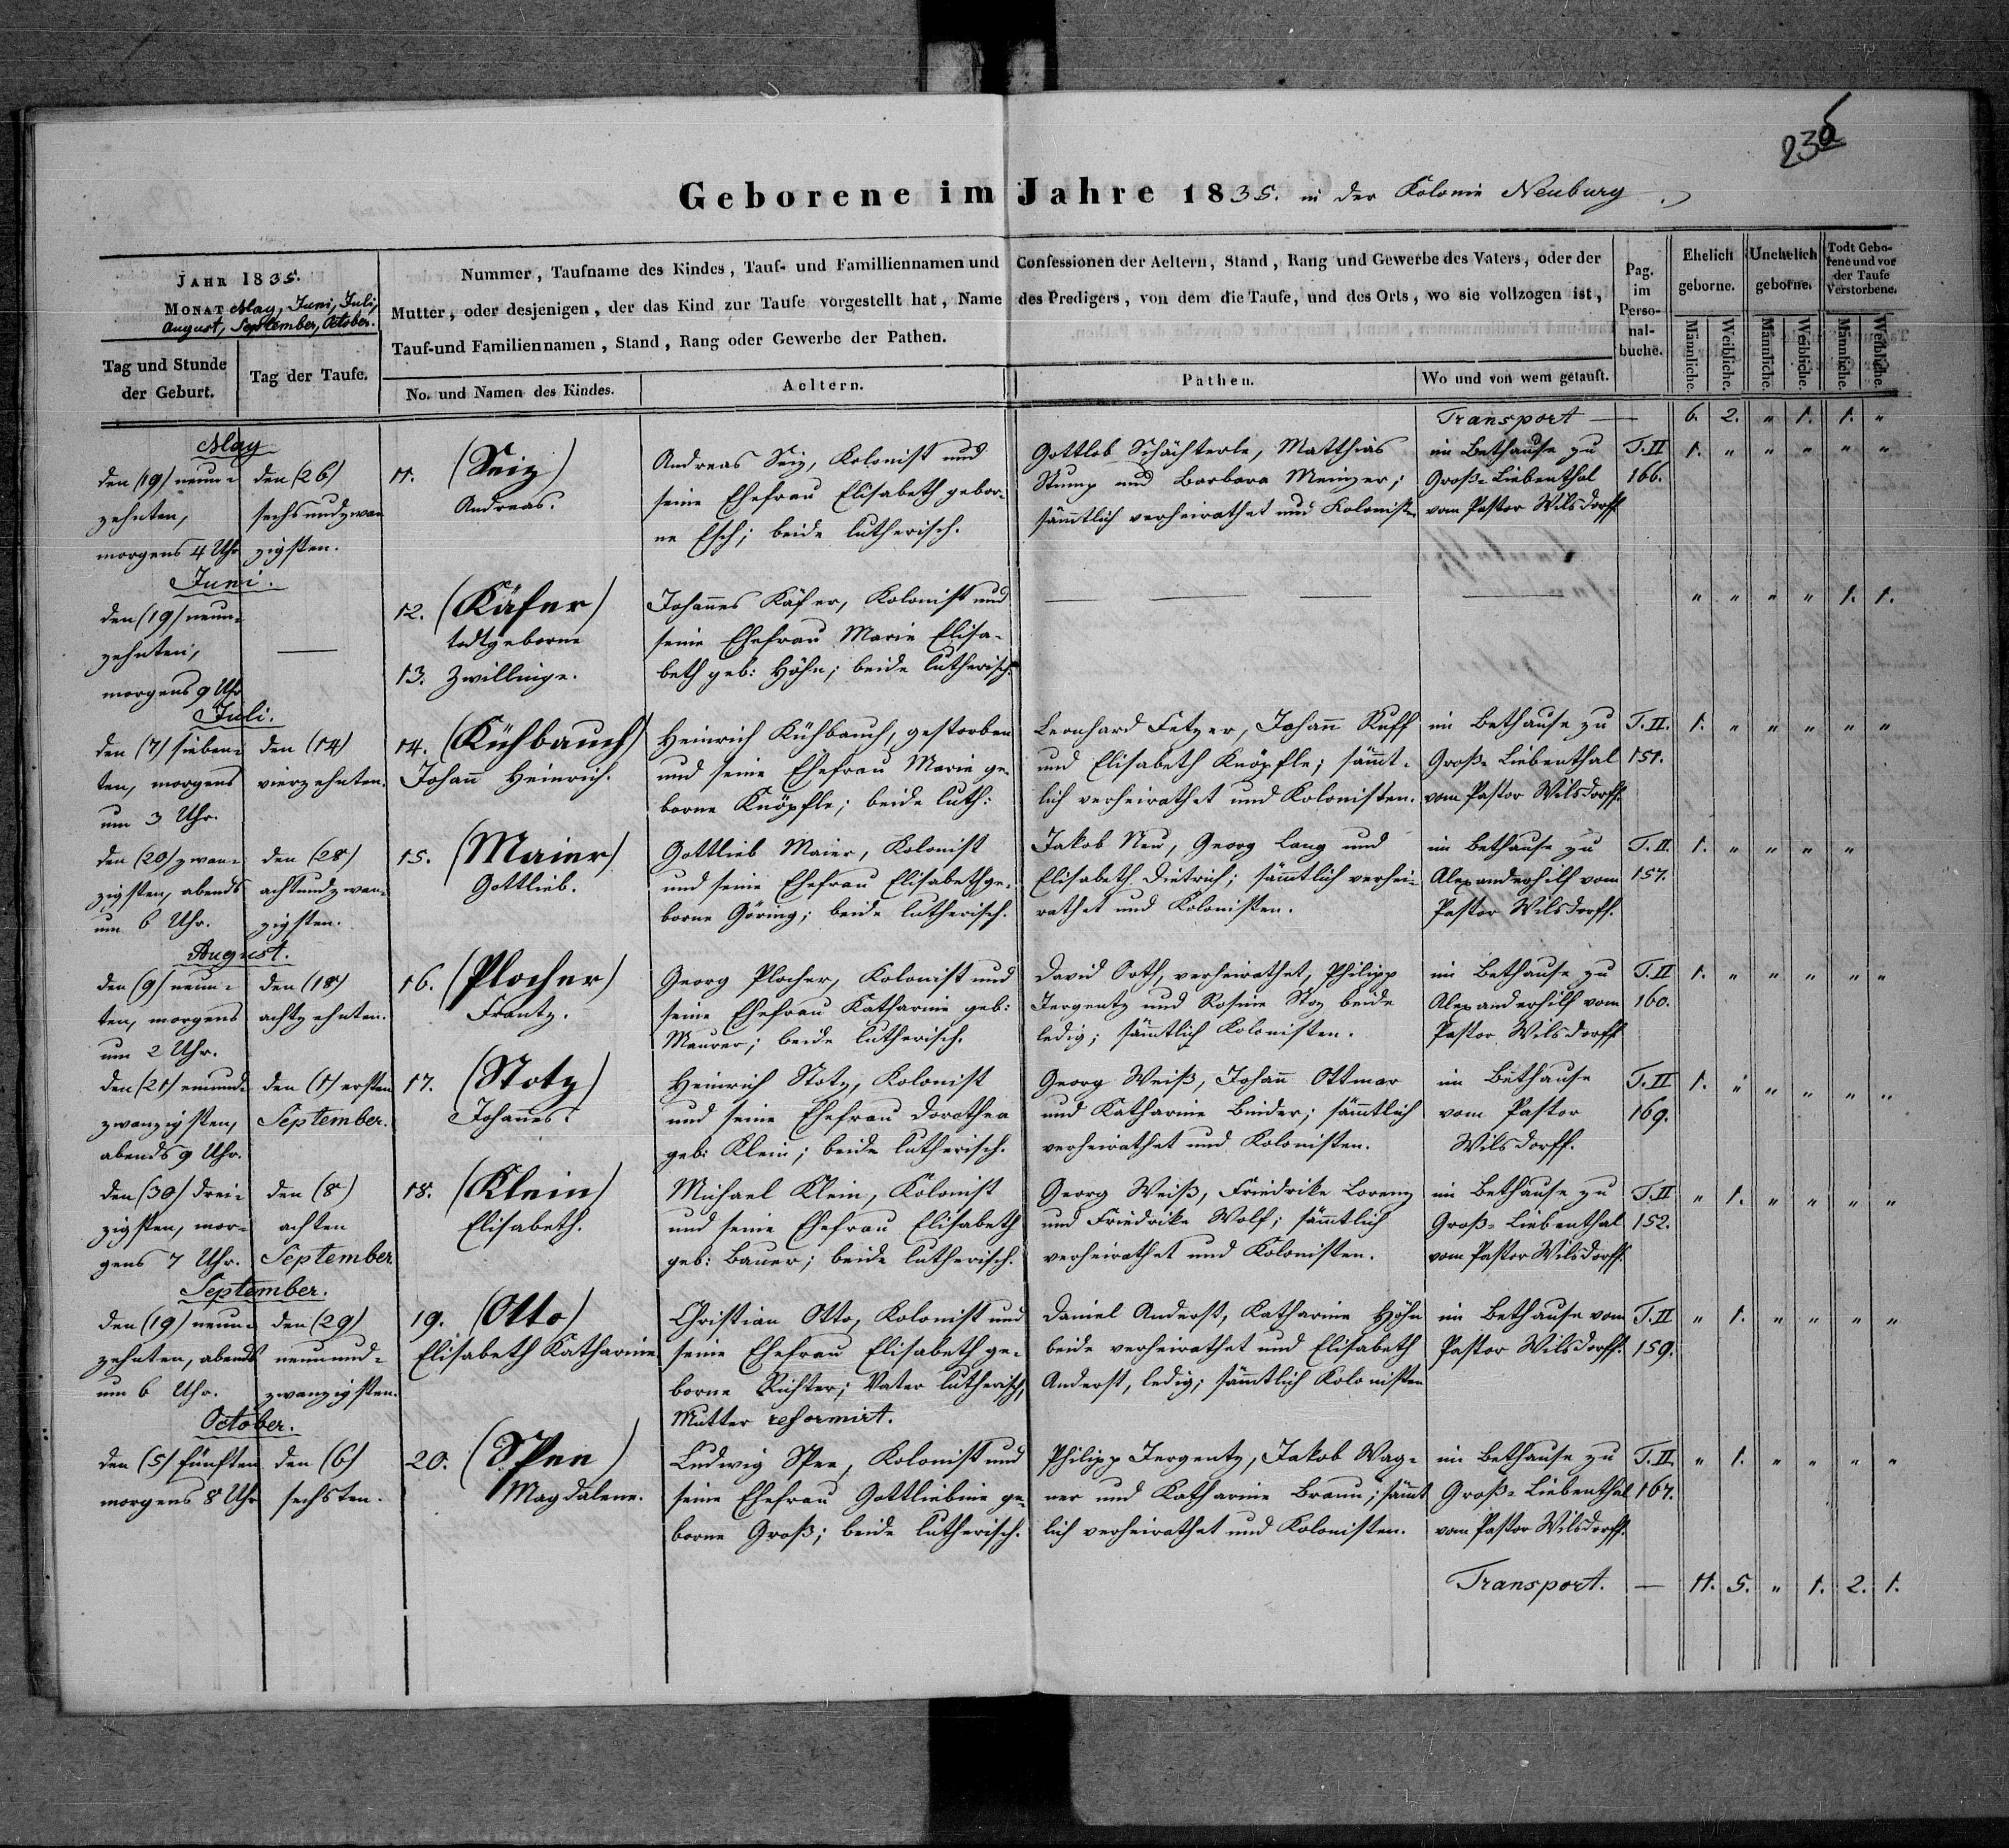 236
Geborene im Jahre 1835. in der Kolonie Neuburg.
JAHR 1835.
MONAT May, Juni, Juli,
August, September, October.
Tag und Stunde
der Geburt.
Tag der Taufe.
Nummer, Taufname des Kindes, Tauf- und Familliennamen und Confessionen der Aeltern, Stand, Rang und Gewerbe des Vaters, oder der
Mutter, oder desjenigen, der das Kind zur Taufe vorgestellt hat, Name des Predigers, von dem die Taufe, und des Orts, wo sie vollzogen ist,
Tauf-und Familiennamen, Stand, Rang oder Gewerbe der Pathen.
No. und Namen des Kindes.
Aeltern.
Pathen.
Wo und von wem getauft.
Pag.
im
Perso-
nal-
buche.
Ehelich
geborne.
Unehelich
geborne.
Todt Gebo-
rene und vor
der Taufe
Verstorbene.
Männliche.
Weibliche.
Männliche.
Weibliche.
Männliche.
Weibliche.
Transport — — 6. 2. " 1. 1. "
May
den (19) neun-
zehnten,
morgens 4 Uhr
den (26)
sechsundzwan
zigsten.
11. (Seiz)
Andreas.
Andreas Seiz, Kolonist und
seine Ehefrau Elisabeth gebor-
ne Esch; beide lutherisch.
Gottlob Schächterle, Matthias
Stump und Barbara Meinzer;
sämmtlich verheirathet und Kolonist.
im Bethause zu
Groß-Liebenthal
vom Pastor Wilsdorff
T. II
166.
1. " " " " "
Juni.
den (19) neun-
zehnten,
morgens 9 Uhr
—
12. (Käfer)
todtgeborne
13. Zwillinge.
Johannes Käfer, Kolonist und
seine Ehefrau Marie Elisa-
beth geb: Höhn; beide lutherisch.
— — — —
" " " " 1. 1.
Juli.
den (7) sieben-
ten, morgens
um 3 Uhr.
den (14)
vierzehnten.
14. (Kühbauch)
Johann Heinrich.
Heinrich Kühbauch, gestorben
und seine Ehefrau Marie ge-
borne Knöpfle; beide luth:
Leonhard Fetzer, Johann Ruff
und Elisabeth Knöpfle; sämmt-
lich verheirathet und Kolonisten.
im Bethause zu
Groß-Liebenthal
vom Pastor Wilsdorff.
T. II.
151.
1. " " " " "
den (20) zwan-
zigsten, abends
um 6 Uhr.
den (28)
achtundzwan-
zigsten.
15. (Maier)
Gottlieb.
Gottlieb Maier, Kolonist
und seine Ehefrau Elisabeth ge-
borne Göring; beide lutherisch.
Jakob Neu, Georg Lang und
Elisabeth Dietrich; sämmtlich verhei-
rathet und Kolonisten.
im Bethause zu
Alexanderhilf vom
Pastor Wilsdorff.
T. II.
157.
1. " " " "
August.
den (9) neun-
ten, morgens
um 2 Uhr.
den (18)
achtzehnten.
16. (Plocher)
Frantz.
Georg Plocher, Kolonist und
seine Ehefrau Katharine geb:
Maurer; beide lutherisch.
David Orth, verheirathet, Philipp
Jergentz und Rosine Noz beide
ledig; sämmtlich Kolonisten.
im Bethause zu
Alexanderhilf vom
Pastor Wilsdorff
T. II
160.
1. " " " " "
den (21) einund-
zwanzigsten,
abends 9 Uhr.
den (1) ersten
September.
17. (Stotz)
Johannes.
Heinrich Stotz, Kolonist
und seine Ehefrau Dorothea
geb: Klein; beide lutherisch.
Georg Weiß, Johann Ottmar
und Katharine Binder; sämmtlich
verheirathet und Kolonisten.
im Bethause
vom Pastor
Wilsdorff.
T. II
169.
1. " " " " "
den (30) drei-
zigsten, mor-
gens 7 Uhr.
den (8)
achten
September.
18. (Klein)
Elisabeth.
Michael Klein, Kolonist
und seine Ehefrau Elisabeth
geb: Bauer; beide lutherisch.
Georg Weiß, Friedrike Lorenz
und Friedrike Wolf; sämmtlich
verheirathet und Kolonisten.
im Bethause zu
Groß-Liebenthal
vom Pastor Wilsdorff.
T. II
152.
" 1. " " " "
September.
den (19) neun-
zehnten, abends
um 6 Uhr.
den (29)
neunund-
zwanzigsten.
19. (Otto)
Elisabeth Katharine
Christian Otto, Kolonist und
seine Ehefrau Elisabeth ge-
borne Richter; Vater lutherisch,
Mutter reformirt.
Daniel Anderst, Katharine Höhn
beide verheirathet und Elisabeth
Anderst, ledig; sämmtlich Kolonisten
im Bethause vom
Pastor Wilsdorff.
T. II
159.
" 1. " " " "
October.
den (5) fünften
morgens 8 Uhr
den (6)
sechsten.
20. (Spee)
Magdalene.
Ludwig Spee, Kolonist und
seine Ehefrau Gottliebine ge-
borne Groß; beide lutherisch.
Philipp Jergentz, Jakob Wag-
ner und Katharine Braun; sämt
lich verheirathet und Kolonisten.
im Bethause zu
Groß-Liebenthal
vom Pastor Wilsdorff.
T. II.
167.
" 1. " " " "
Transport. — 11. 5. " 1. 2. 1.